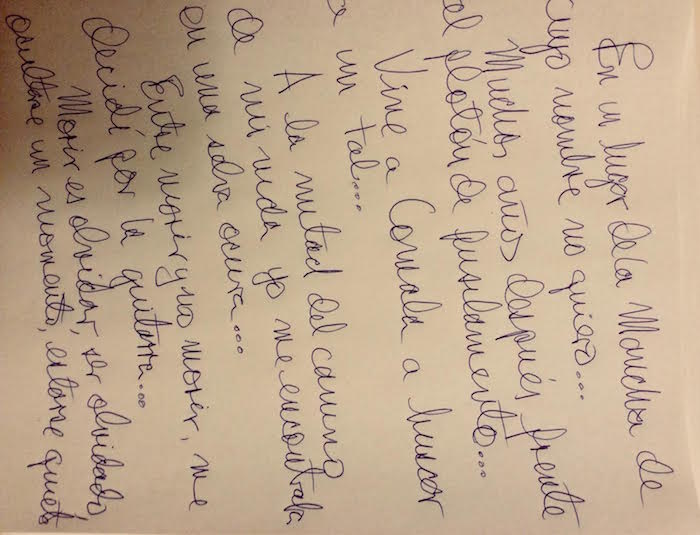 En un lugar de la Mancha de
cuyo nombre no quiero...
Muchos años después frente
al plotón de fusilamento...
Vine a Comala a buscar
un tal...
A la mitad del camino
de mi vida yo me encontraba
en una selva oscura...
Entre morir y no morir, me
decidí por la guitarra...
Morir es olvidar, ser olvidado,
ocultarse un momento, estarse quieto